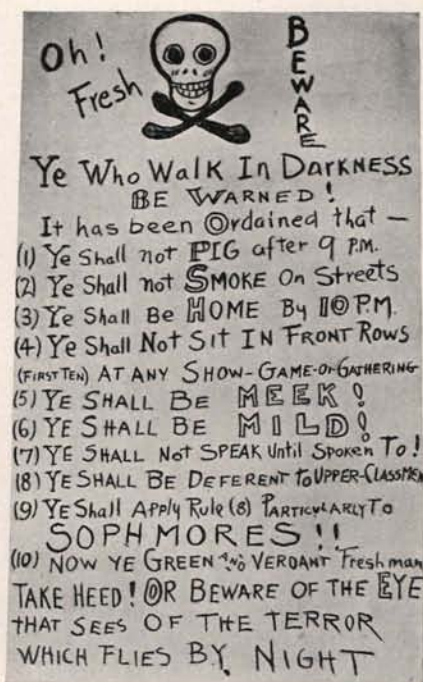 Oh!
Fresh
BEWARE
Ye Who Walk In Darkness
BE WARNED!
It has been Ordained that —
(1) Ye Shall not PIG after 9 P.M.
(2) Ye Shall not SMOKE On Streets
(3) Ye Shall Be HOME By 10 P.M.
(4) Ye Shall Not Sit In Front Rows
(FIRST TEN) AT ANY SHOW-GAME-Or-GATHERING
(5) YE SHALL BE MEEK!
(6) YE SHALL BE MILD!
(7) YE SHALL Not SPEAK Until Spoken To!
(8) YE SHALL BE DEFERENT To UPPER-CLASSMEN
(9) YE Shall Apply Rule (8) PARTICULARLY To
SOPHMORES!!
(10) NOW YE GREEN AND VERDANT Freshman
TAKE HEED! OR BEWARE OF THE EYE
THAT SEES OF THE TERROR
WHICH FLIES BY NIGHT